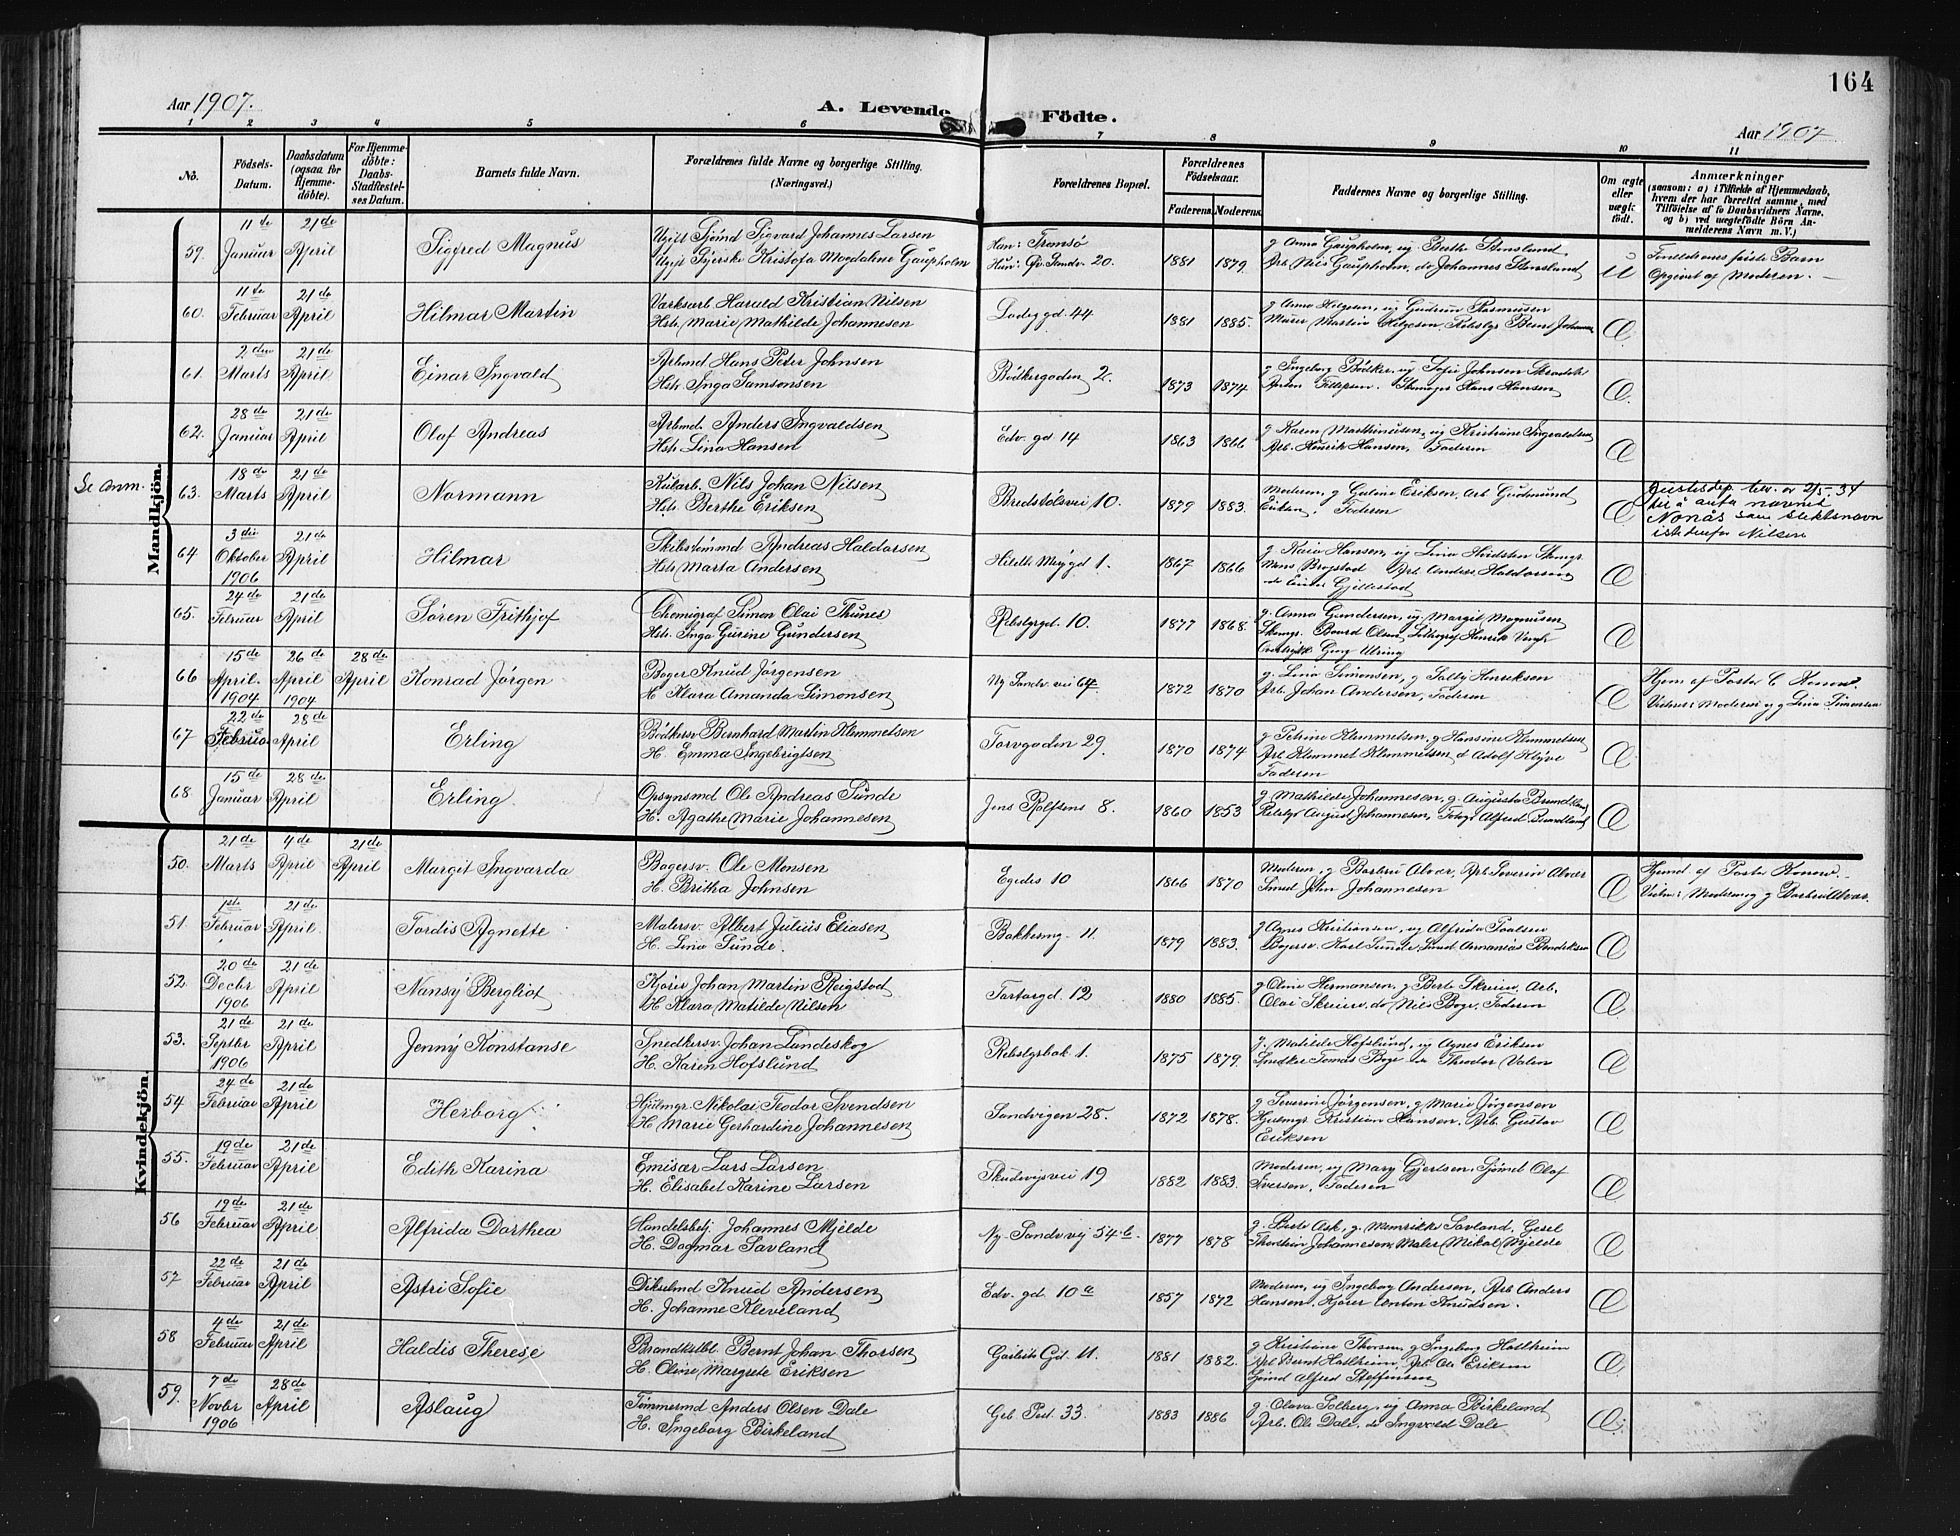 164
Aar 1907.
A. Levende
Födte.
Aar 1907
1 2 3 4 5 6 7 8 9 10 11
Nô.
Födsels-
Datum.
Daabsdatum
(ogsaa for
Hjemme-
döbte).
For Hjemme-
döbte:
Daabs-
Stadfæstel-
ses Datum.
Barnets fulde Navn.
Forældrenes fulde Navne og borgerlige Stilling.
(Næringsvei.)
Forældrenes Bopæl.
Forældrenes
Födselsaar.
Faderens. Moderens.
Faddernes Navne og borgerlige Stilling.
Om ægte
eller
uægte
födt.
Anmærkninger
(saasom: a) i Tilfælde af Hjemmedaab,
hvem der har forrettet samme, med
Tilföielse af to Daabsvidners Navne,
og b) ved uægtefödte Börn An-
melderens Navn m. V.)
Mandkjön.
59. 11te Januar 21de April Sigfred Magnus
Ugift Sjömd Sigvard Johannes Larsen
Ugift Syerske Kristofa Magdalene Gaupholm
Han: Tromsö
Hun: Öv. Sandv. 20. 1881 1879.
g Anna Gaupholm, ug Berthe Stensland
Arb. Nils Gaupholm, do Johannes Stensland U
Forældrenes förste Barn
Opgivet af Moderen. —
60. 11te Februar 21de April Hilmar Martin
Værksarb. Harald Kristian Nilsen
Hstr. Marie Mathilde Johannesen
Ladegd. 44 1881 1885.
g Anna Helgesen, ug Gudrun Rasmusen
Murer Martin Helgesen Rebslgr Bernt Johannes Æ
61. 2den Marts 21de April Einar Ingvald
Arbmd Hans Peter Johnsen
Hstr. Inga Samsonsen
Bödkergaden 2. 1873 1874
g Ingeborg Bödker, ug Sofie Johnsen
Anton Hans Hansen Æ
62. 28de Januar 21de April Olaf Andreas
Arbmd. Anders Ingvaldsen
Hstr. Lina Hansen
Edv. gd 14 1863 1866
g Karen Marthinusen, ug Kristiane Ingvaldsen
Arb. Henrik Hansen, Faderen Æ
Se anm. 63. 18de Marts 21de April Normann
Kularb. Nils Johan Nilsen
Hstr. Berthe Eriksen
Bredstölsvei 10. 1879 1883.
Moderen, g Guline Eriksen, Arb. Gudmund
Eriksen, Faderen Æ
Justisdep. bev. av 2/5-34
til å anta navnet
Nonås som slektsnavn
istedenfor Nilsen
64 3die Oktober 1906 21de April Hilmar
Skibstömmd Andreas Haldorsen
Hstr. Marta Andersen
1. 1867 1866
g. Kaia Hansen, ug Lina
Arb. Anders Haldorsen
do Einar Gjellestad Æ
65. 24de Februar 21de April Sören Frithjof
Chemigraf Simon Olai Thunes
Hstr. Inga Gurine Gundersen
Rebslgrgd. 10. 1877 1868.
g. Anna Gundersen, ug. Margit Magnusen
Skomgr. Baard Olsen, Lithograf Henrik
Georg Ulring Æ
66 15de April. 1904 26de April 1904 28de April Konrad Jörgen
Bager Knud Jörgensen
H. Klara Amanda Simonsen
Ny Sandv. vei 64 1872 1870
g. Lina Simonsen, g Salby Henriksen
Arb. Johan Andersen, Faderen Æ
Hjem. af Pastor C Konow.
Vidner: Moderen og g Lina Simonsen
67 22de Februar 28de April Erling
Bödkersv Bernhard Martin Klemmetsen
H. Emma Ingebrigtsen
Torvgaden 29. 1870 1874
g Petrine Klemmetsen, g Hansine Klemmetsen
Arb. Klemmet Klemmetsen, d Adolf Klyve
Faderen Æ
68. 15de Januar 28de April Erling
Opsynsmd Ole Andreas Sunde
H. Agathe Marie Johannesen
Jens Rolfsens 8. 1860 1853
g. Mathilde Johannesen, g. Augusta Brundtland
Rebslgr August Johannesen, Fotogr Alfred Brundtland Æ
Kvindekjön.
50. 21de Marts 4de April 21de April Margit Ingvarda
Bagersv. Ole Monsen
H. Britha Johnsen
Egedis 10 1866 1870
Moderen, g Barbru Alver, Arb. Severin Alver
Smed John Johannesen Æ
Hjemd af Pastor Konow. —
Vidn.: Moderen og g Barbru Alver.
51. 1ste Februar 21de April Tordis Agnette
Malersv. Albert Julius Eliasen
H. Lina Sunde.
Bakkesmg. 11. 1879 1883.
g Agnes Kristiansen, ug Alfrida Paalsen
Bagersv. Karl Sunde, Smed Ananias Bendiksen Æ
52. 20de Decbr 1906 21de April Nansy Bergliot
Kjörer Johan Martin Reigstad
H. Klara Matilde Nilsen
Tartargd. 12 1880 1885.
g Oline Hermansen, g Berte Skreien, Arb.
Olai Skreien, do Nils Boge, Faderen Æ
53. 21de Septbr 1906 21de April Jenny Konstanse
Snedkersv. Johan Lundeskog
H. Karen Hofslund
Rebslgrbak 1. 1875 1879.
g. Matilde Hofslund, ug Agnes Eriksen
Snedker Tomas Boge do Theodor Valen Æ
54 24de Februar 21de April Herborg
Hjulmgr. Nikolai Teodor Svendsen
H. Marie Gerhardine Johannesen
Sandvigen 28. 1872 1878.
g Severine Jörgensen, g Marie Jörgensen
Hjulmgr Kristian Hansen, Arb. Gustav
Eriksen Æ
55. 19de Februar 21de April Edith Karina
Emisær Lars Larsen
H. Elisabet Karine Larsen
Skudevigsvei 19 1882 1883.
Moderen, ug Mary Gjertsen, Sjömd Olaf
Iversen, Faderen Æ
56 19de Februar 21de April Alfrida Dorthea
Handelsbetj. Johannes Mjelde
H. Dagmar Savland
Ny Sandvvej 54b. 1877 1878
g. Berte Ask, g. Henrikke Savland, Gesel
Thorstein Johannesen, Maler Mikal Mjelde Æ
57 22de Februar 21de April Astri Sofie
Dikselmd Knud Andersen
H. Johanne Kleveland
Edv. gd 10a 1857 1872
Moderen, ug Ingeborg Andersen, Arb Anders
Hansen, Kjörer Anton Knudsen. Æ
58 4de Februar 21de April Haldis Therese
Brandkstbl Bernt Johan Thorsen
H. Oline Margrete Eriksen
Gd 11. 1881 1882.
g Kristiane Thorsen, g Ingeborg Hatlheim
Arb Bernt Hatlheim, Arb. Ole Eriksen
Sjömd Alfred Steffensen Æ
59. 7de Novbr 1906 28de April Aslaug
Tömmermd Anders Olsen Dale
H. Ingeborg Birkeland
33. 1883 1886
g. Olava Solberg, ug Anna Birkeland
Arb. Ole Dale, do Ingvald Dale Æ